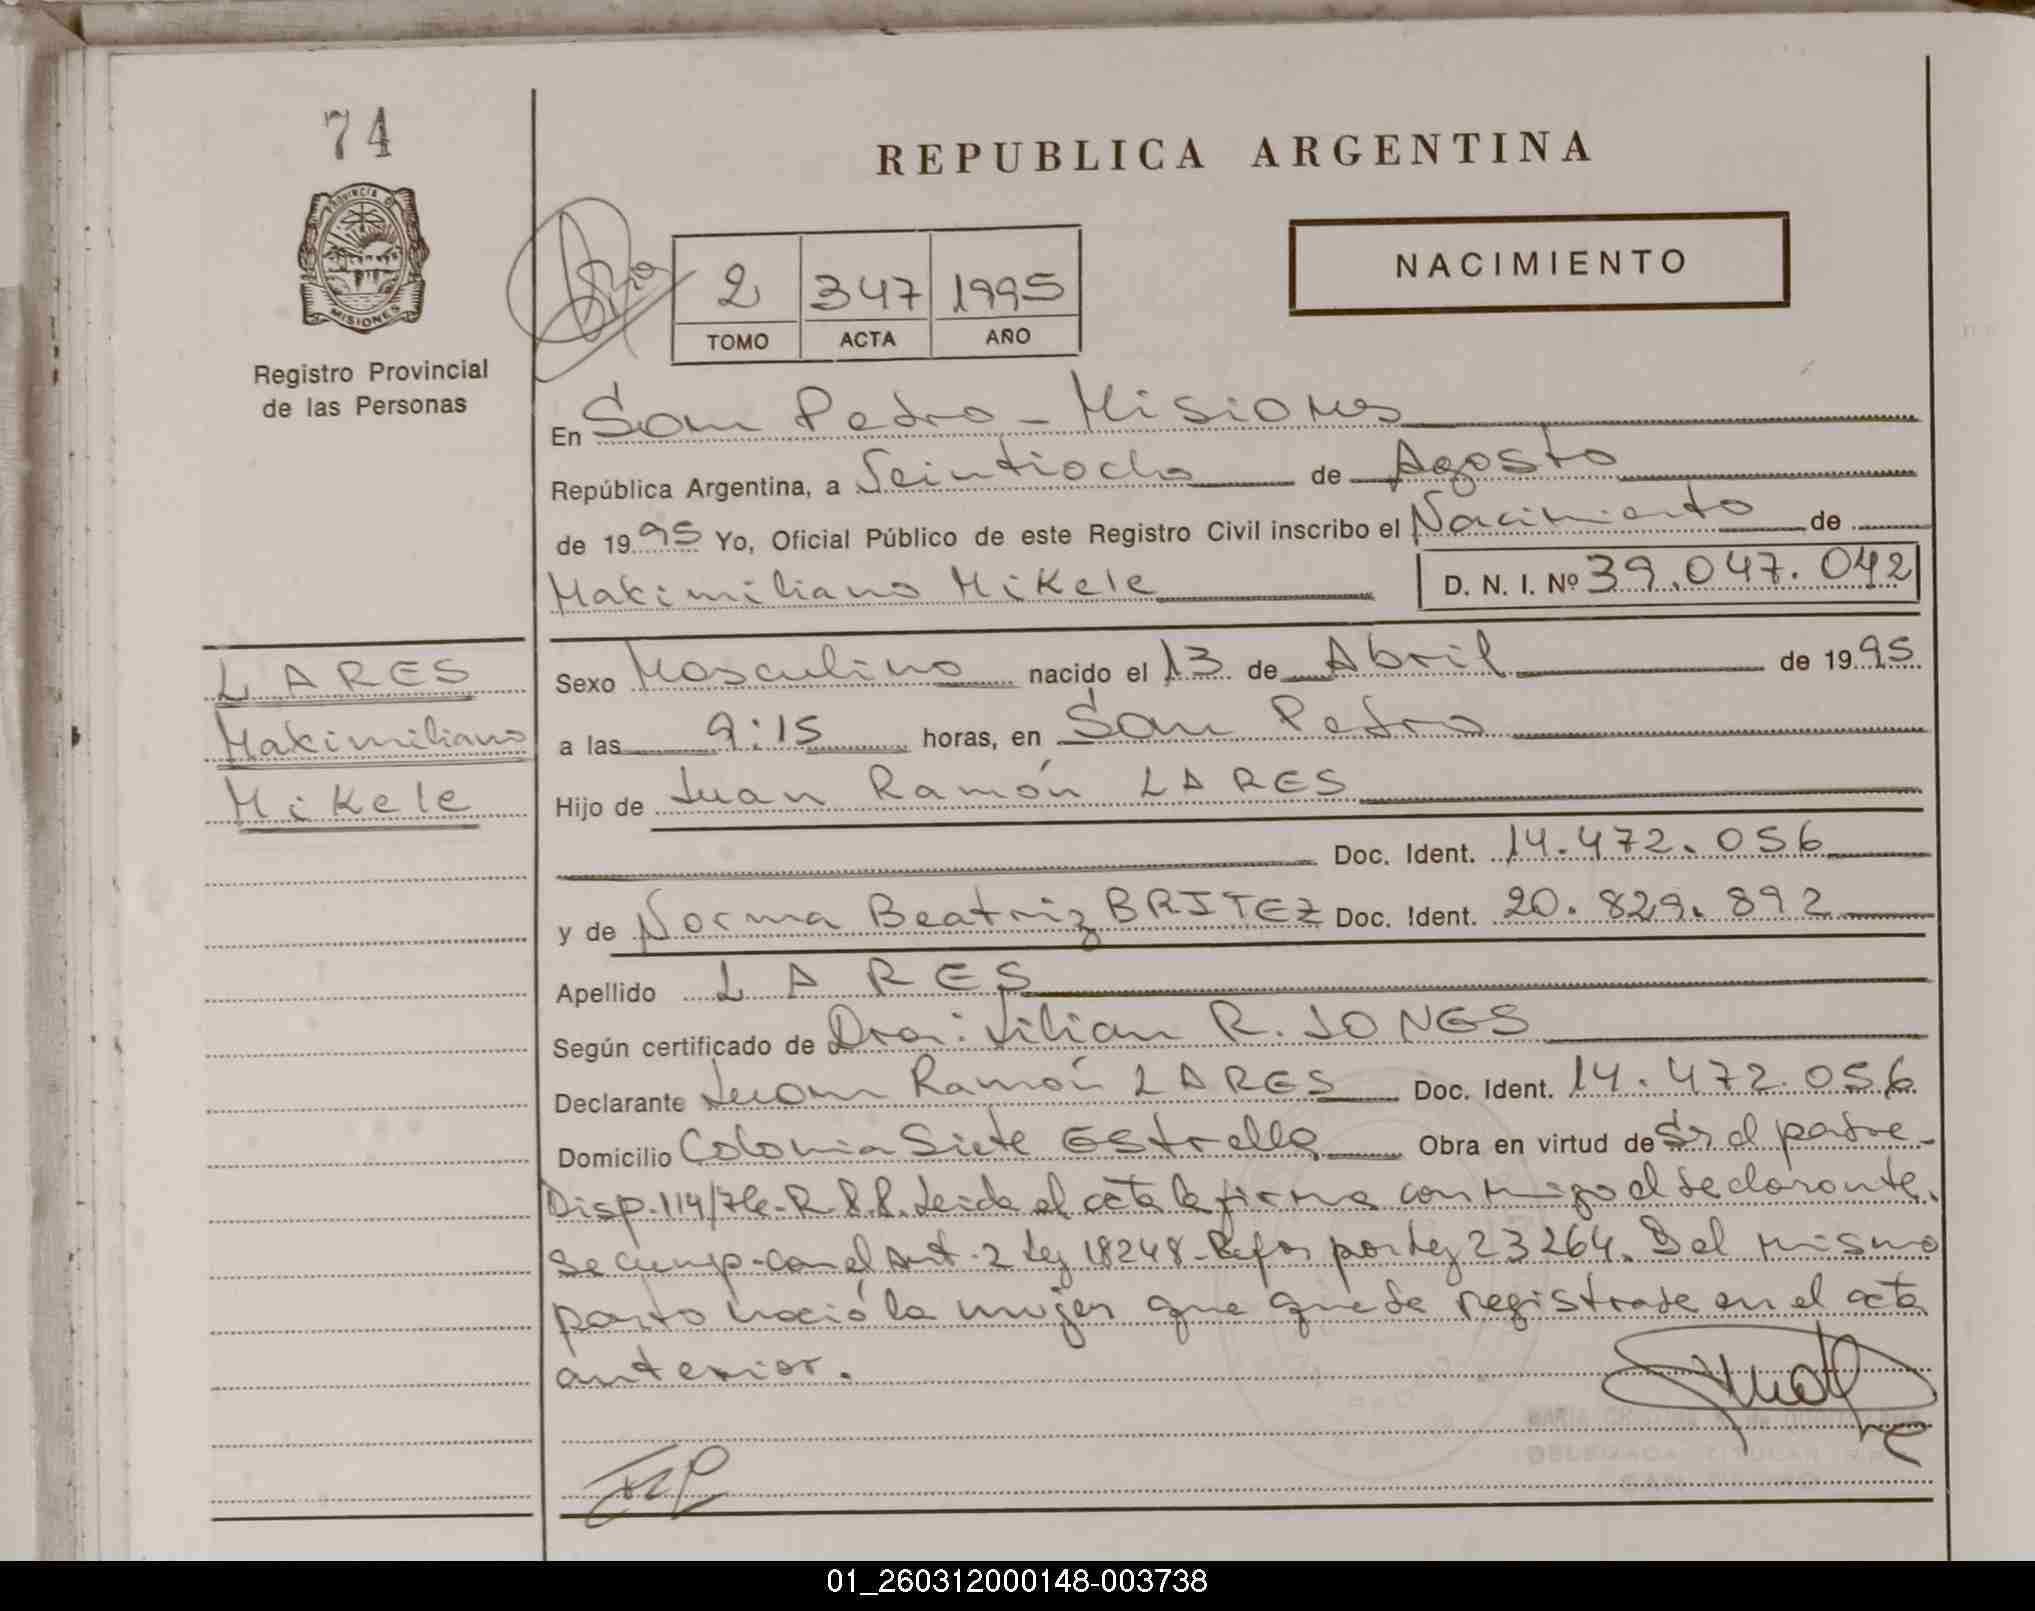 74
REPUBLICA ARGENTINA
PROVINCIA DE
MISIONES
NACIMIENTO
2 347 1995
TOMO ACTA AÑO
Registro Provincial
de las Personas
En San Pedro - Misiones
República Argentina, a Veintiocho de Agosto
de 1995 Yo, Oficial Público de este Registro Civil inscribo el Nacimiento de
Maximiliano Mikele D. N. I. Nº 39.047.042
LARES
Maximiliano
Mikele
Sexo Masculino nacido el 13 de Abril de 1995
a las 9:15 horas, en San Pedro
Hijo de Juan Ramón LARES
Doc. Ident. 14.472.056
y de Norma Beatriz BRITEZ Doc. Ident. 20.829.892
Apellido LARES
Según certificado de Dra: Lilian R. JONES
Declarante Juan Ramón LARES Doc. Ident. 14.472.056
Domicilio Colonia Siete Estrella Obra en virtud de Sr el padre-
Disp. 114/76-R.P.P. Leida el acta la firma conmigo el declarante.
Se cump. con el Art. 2 Ley 18248 - Refor por Ley 23264. Del mismo
parto nació la mujer que queda registrada en el acta
anterior.
DELEGADA TITULAR
SAN PEDRO
01_260312000148-003738